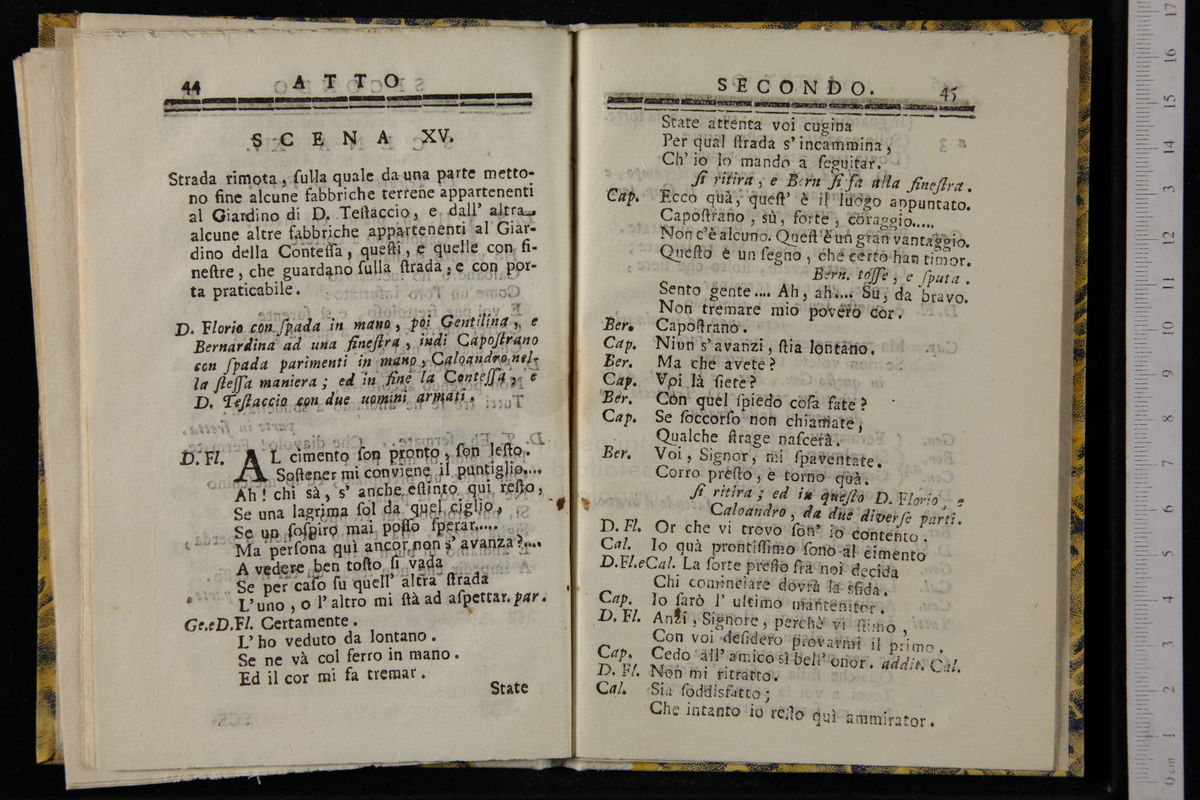 44 ATTO
SCENA XV.
Strada rimota, ſulla quale da una parte metto-
no fine alcune fabbriche terrene appartenenti
al Giardino di D. Teſtaccio, e dall' altra
alcune altre fabbriche appartenenti al Giar-
dino della Conteſſa, queſti, e quelle con fi-
neſtre, che guardano ſulla ſtrada, e con por-
ta praticabile.
D. Florio con ſpada in mano, poi Gentilina, e
Bernardina ad una fineſtra, indi Capoſtrano
con ſpada parimenti in mano, Caloandro nel-
la ſteſſa maniera; ed in fine la Conteſſa, e
D. Teſtaccio con due uomini armati.
D. Fl. AL cimento ſon pronto, ſon leſto.
Soſtener mi conviene il puntiglio....
Ah! chi sà, s' anche eſtinto qui reſto,
Se una lagrima ſol da quel ciglio,
Se un ſoſpiro mai poſſo ſperar.....
Ma perſona quì ancor non s' avanza?....
A vedere ben toſto ſi vada
Se per caſo ſu quell' altra ſtrada
L'uno, o l'altro mi ſtà ad aſpettar. par.
Ge.eD.Fl. Certamente.
L'ho veduto da lontano.
Se ne và col ferro in mano.
Ed il cor mi fa tremar.
State
SECONDO. 45
State attenta voi cugina
Per qual ſtrada s' incammina,
Ch' io lo mando a ſeguitar.
ſi ritira, e Bern ſi fa alla fineſtra.
Cap. Ecco quà, queſt' è il luogo appuntato.
Capoſtrano, sù, forte, coraggio.....
Non c'è alcuno. Queſt'è un gran vantaggio.
Queſto è un ſegno, che certo han timor.
Bern. toſſe, e ſputa.
Sento gente.... Ah, ah.... Su, da bravo.
Non tremare mio povero cor.
Ber. Capoſtrano.
Cap. Niun s'avanzi, ſtia lontano.
Ber. Ma che avete?
Cap. Voi là ſiete?
Ber. Con quel ſpiedo coſa fate?
Cap. Se ſoccorſo non chiamate,
Qualche ſtrage naſcerà.
Ber. Voi, Signor, mi ſpaventate.
Corro preſto, e torno quà.
ſi ritira; ed in queſto D. Florio, e
Caloandro, da due diverſe parti.
D. Fl. Or che vi trovo ſon' io contento.
Cal. Io quà prontiſſimo ſono al cimento
D.Fl.eCal. La ſorte preſto fra noi decida
Chi cominciare dovrà la sfida.
Cap. Io ſarò l' ultimo mantenitor.
D. Fl. Anzi, Signore, perchè vi ſtimo,
Con voi deſidero provarmi il primo.
Cap. Cedo all' amico sì bell' onor. addit. Cal.
D. Fl. Non mi ritratto.
Cal. Sia ſoddisfatto;
Che intanto io reſto quì ammirator.